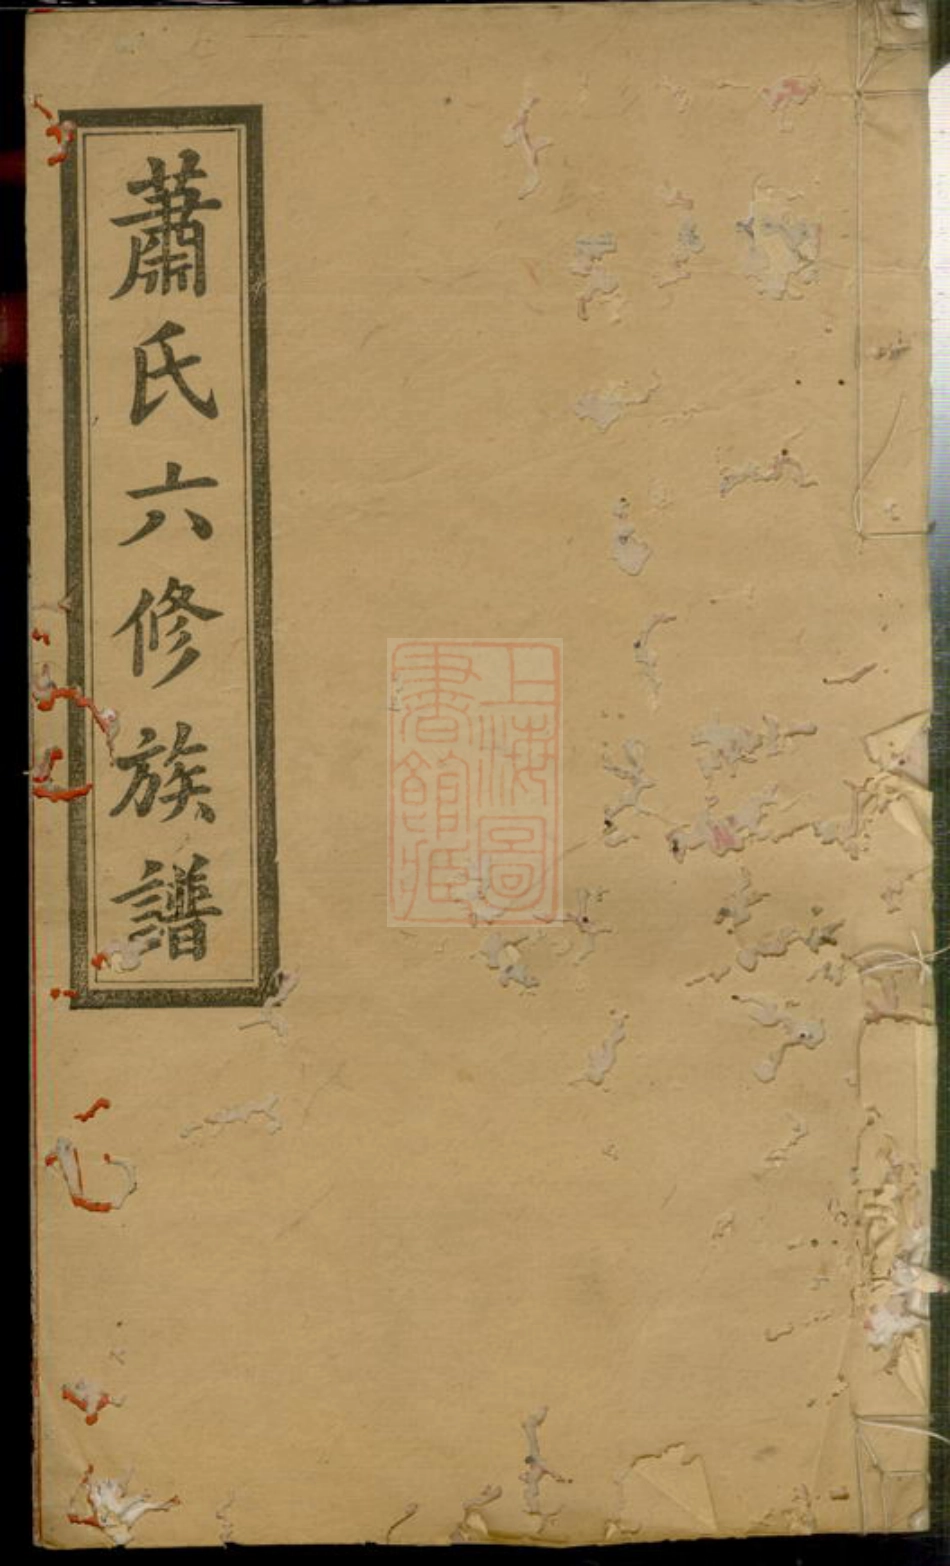 蕭氏六修族譜
上海圖
書館藏